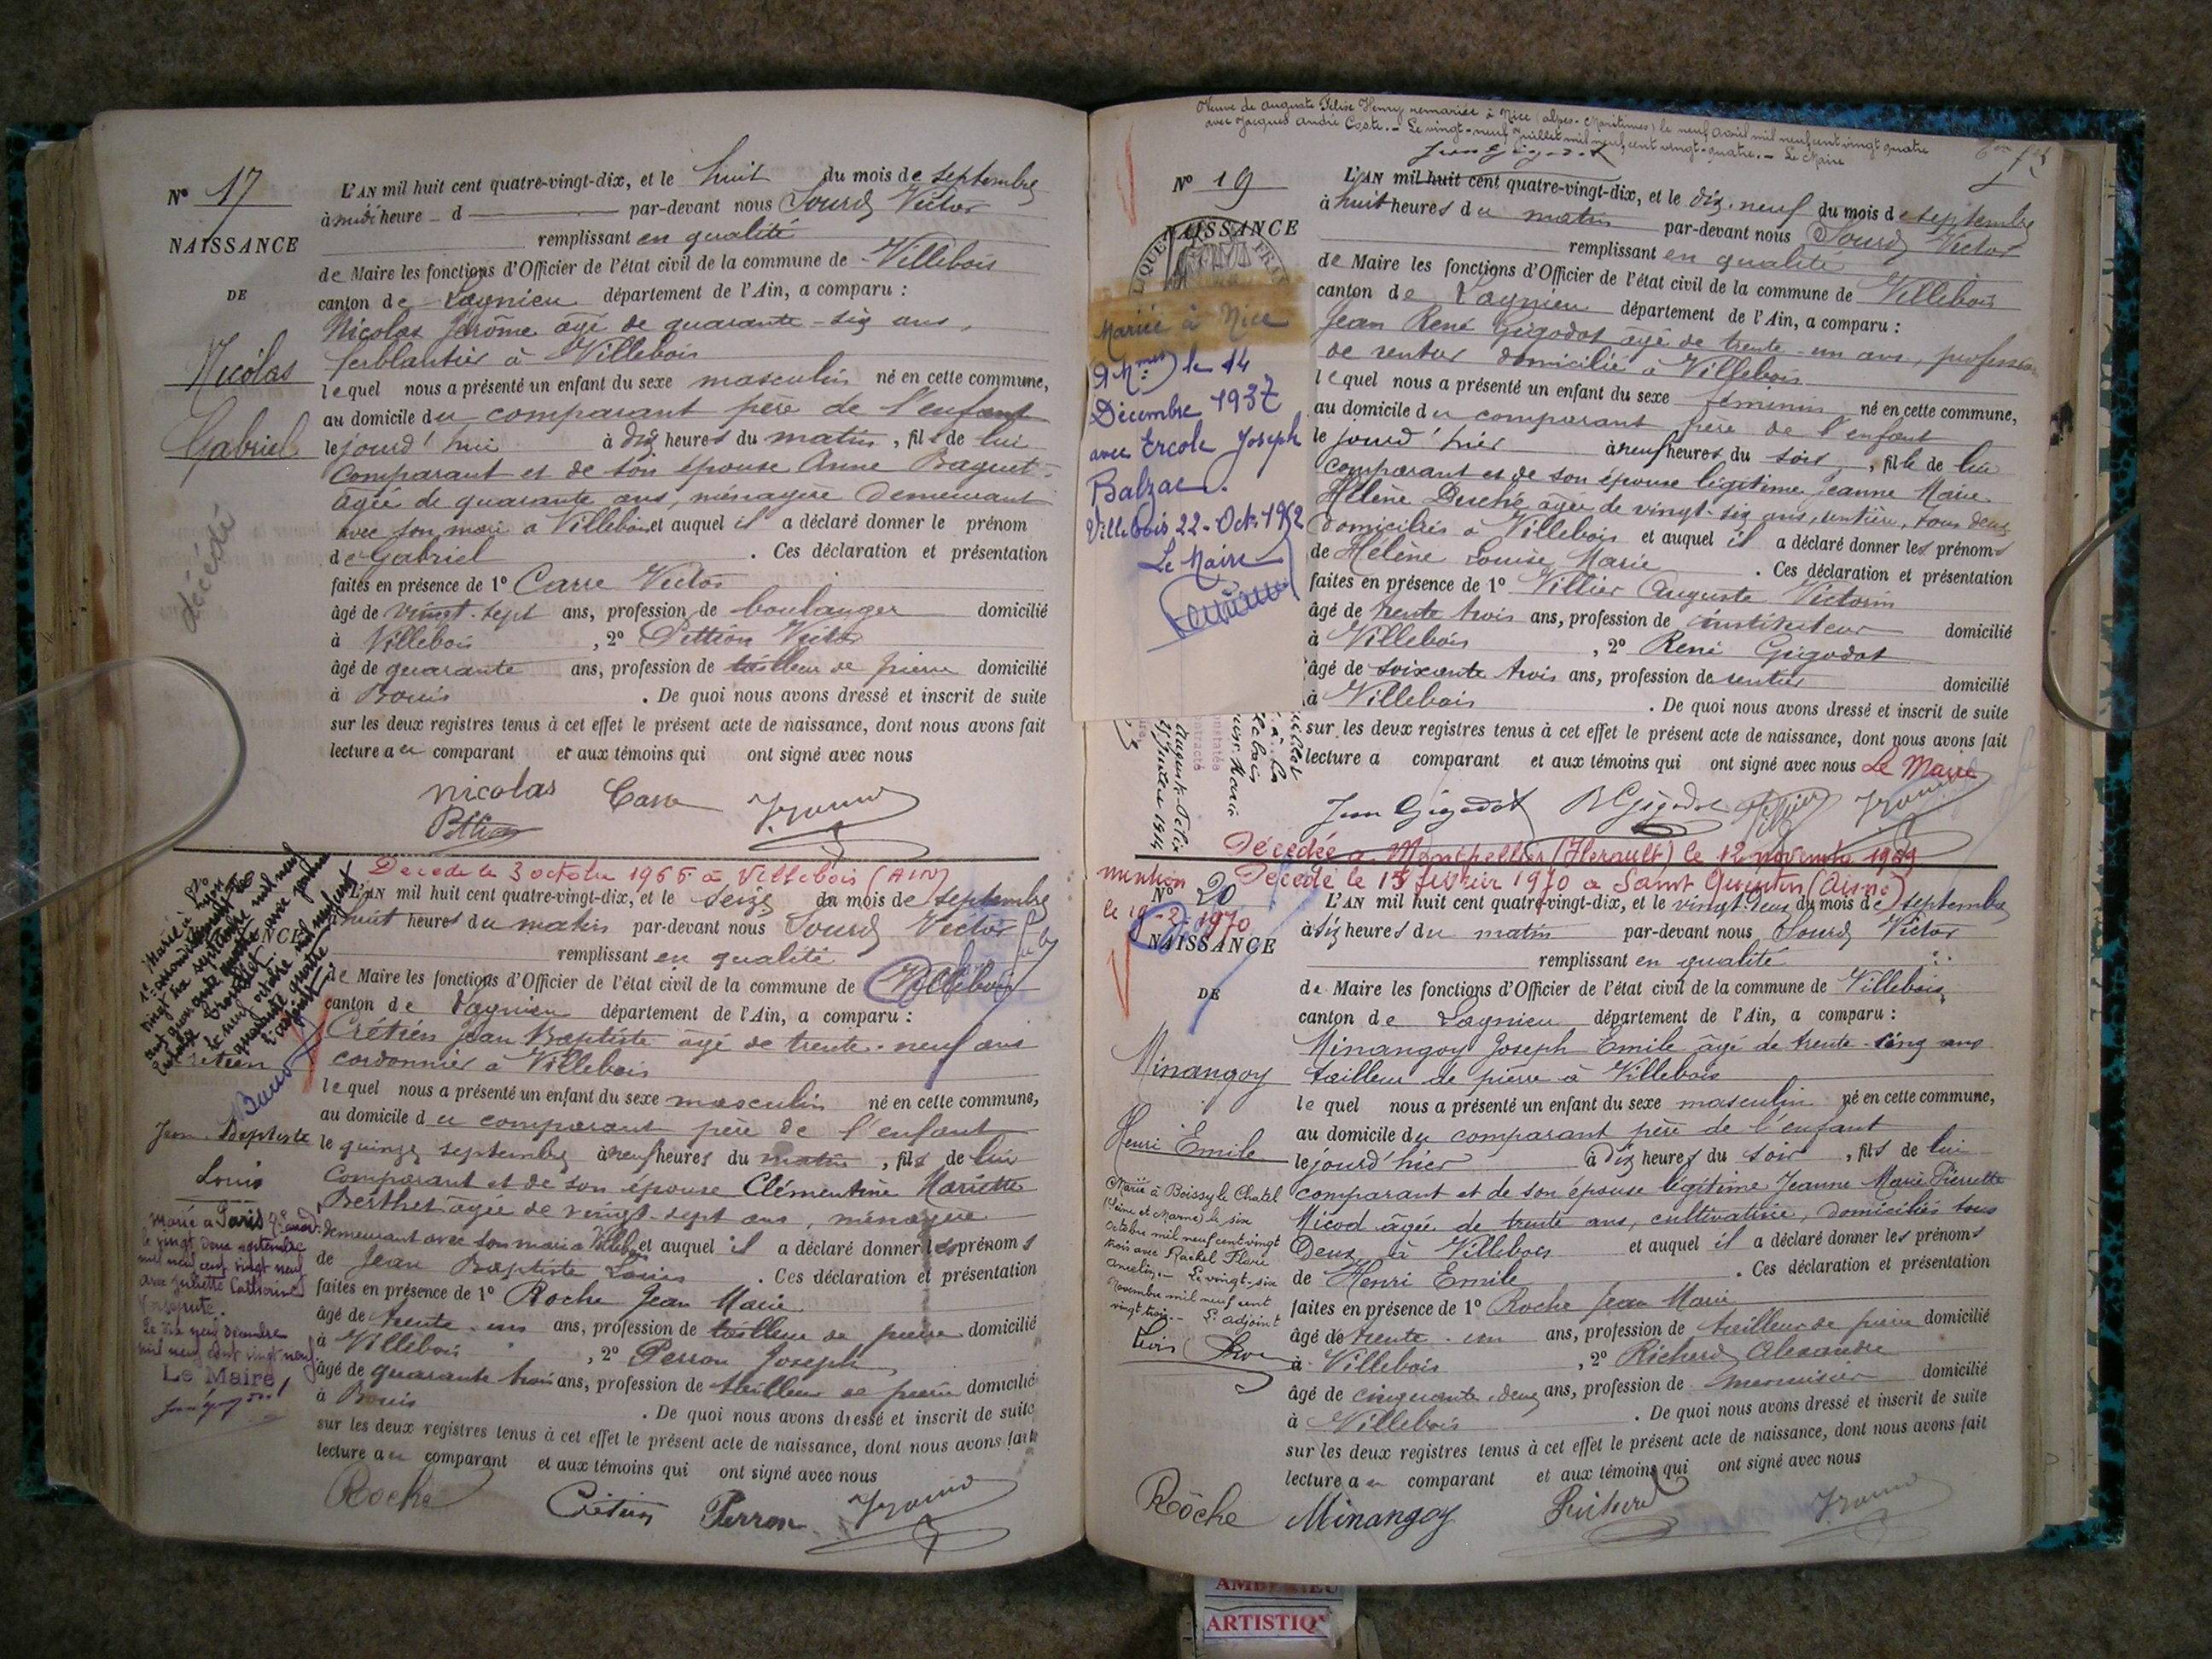 N° 17
NAISSANCE
DE
Nicolas
Gabriel
décédé
L'AN mil huit cent quatre-vingt-dix, et le huit du mois de septembre
à midi heure d par-devant nous Sourd Victor
remplissant en qualité
de Maire les fonctions d'Officier de l'état civil de la commune de Villebois
canton de Lagnieu département de l'Ain, a comparu :
Nicolas Jérôme âgé de quarante-six ans,
ferblantier à Villebois
lequel nous a présenté un enfant du sexe masculin né en cette commune,
au domicile du comparant père de l'enfant
le jourd'hui à dix heures du matin, fils de lui
comparant et de son épouse Anne Baguet
âgée de quarante ans, ménagère demeurant
avec son mari à Villebois et auquel il a déclaré donner le prénom
de Gabriel . Ces déclaration et présentation
faites en présence de 1° Carre Victor
âgé de vingt-sept ans, profession de boulanger domicilié
à Villebois , 2° Pittion Victor
âgé de quarante ans, profession de tailleur de pierre domicilié
à Bouis . De quoi nous avons dressé et inscrit de suite
sur les deux registres tenus à cet effet le présent acte de naissance, dont nous avons fait
lecture au comparant et aux témoins qui ont signé avec nous
Nicolas Carre
Décédé le 3 octobre 1966 à Villebois (AIN)
L'AN mil huit cent quatre-vingt-dix, et le seize du mois de septembre
à huit heures du matin par-devant nous Sourd Victor
remplissant en qualité
de Maire les fonctions d'Officier de l'état civil de la commune de Villebois
canton de Lagnieu département de l'Ain, a comparu :
Crétien Jean Baptiste âgé de trente-neuf ans
cordonnier à Villebois
lequel nous a présenté un enfant du sexe masculin né en cette commune,
au domicile du comparant père de l'enfant
le quinze septembre à neuf heures du matin, fils de lui
comparant et de son épouse Clémentine Mariette
Berthet âgée de vingt-sept ans, ménagère
demeurant avec son mari à Villebois et auquel il a déclaré donner les prénoms
de Jean Baptiste Louis . Ces déclaration et présentation
faites en présence de 1° Roche Jean Marie
âgé de trente-un ans, profession de tailleur de pierre domicilié
à Villebois , 2° Perron Joseph
âgé de quarante trois ans, profession de tailleur de pierre domicilié
à Bouis . De quoi nous avons dressé et inscrit de suite
sur les deux registres tenus à cet effet le présent acte de naissance, dont nous avons fait
lecture au comparant et aux témoins qui ont signé avec nous
Roche Crétien Perron
Jean-Baptiste
Louis
Marié à Paris
le vingt deux septembre
mil neuf cent vingt neuf
avec Juliette Catherine
Le dix neuf décembre
mil neuf cent vingt neuf
Le Maire
Veuve de Auguste Félix Henry remariée à Nice (Alpes-Maritimes) le neuf avril mil neuf cent vingt quatre
avec Jacques André Coste. - Le vingt-neuf Juillet mil neuf cent vingt-quatre. - Le Maire
Jean Gigodot
N° 19
NAISSANCE
Mariée à Nice
(A Mmes) le 14
Décembre 1937
avec Ercole Joseph
Balzac.
Villebois 22 Oct. 1952
Le Maire
L'AN mil huit cent quatre-vingt-dix, et le dix-neuf du mois de septembre
à huit heures du matin par-devant nous Sourd Victor
remplissant en qualité
de Maire les fonctions d'Officier de l'état civil de la commune de Villebois
canton de Lagnieu département de l'Ain, a comparu :
Jean René Gigodot âgé de trente-un ans, profession
de rentier domicilié à Villebois
lequel nous a présenté un enfant du sexe féminin né en cette commune,
au domicile du comparant père de l'enfant
le jourd'hier à neuf heures du soir, fille de lui
comparant et de son épouse légitime Jeanne Marie
Hélène Duché âgée de vingt-six ans, rentière, tous deux
domiciliés à Villebois et auquel il a déclaré donner les prénoms
de Hélène Louise Marie . Ces déclaration et présentation
faites en présence de 1° Villier Auguste Victorin
âgé de trente trois ans, profession de instituteur domicilié
à Villebois , 2° René Gigodot
âgé de soixante trois ans, profession de rentier domicilié
à Villebois . De quoi nous avons dressé et inscrit de suite
sur les deux registres tenus à cet effet le présent acte de naissance, dont nous avons fait
lecture a comparant et aux témoins qui ont signé avec nous Le Maire
Jean Gigodot R Gigodot
Décédée à Montpellier (Herault) le 12 novembre 1969
mention
le 19-2-1970
Décédé le 15 février 1970 à Saint Quentin (Aisne)
N° 20
NAISSANCE
DE
Minangoy
Henri Emile
Marié à Boissy le Chatel
(Seine et Marne) le six
Octobre mil neuf cent vingt
trois avec Rachel Flore
Ancelin. - Le vingt-six
Novembre mil neuf cent
vingt trois. - L'adjoint
L'AN mil huit cent quatre-vingt-dix, et le vingt-deux du mois de septembre
à six heures du matin par-devant nous Sourd Victor
remplissant en qualité
de Maire les fonctions d'Officier de l'état civil de la commune de Villebois
canton de Lagnieu département de l'Ain, a comparu :
Minangoy Joseph Emile âgé de trente-cinq ans
tailleur de pierre à Villebois
lequel nous a présenté un enfant du sexe masculin né en cette commune,
au domicile du comparant père de l'enfant
le jourd'hier à dix heures du soir, fils de lui
comparant et de son épouse légitime Jeanne Marie Pierrette
Micod âgée de trente ans, cultivatrice, domiciliés tous
deux à Villebois et auquel il a déclaré donner les prénoms
de Henri Emile . Ces déclaration et présentation
faites en présence de 1° Roche Jean Marie
âgé de trente-un ans, profession de tailleur de pierre domicilié
à Villebois , 2° Richerd Alexandre
âgé de cinquante-deux ans, profession de menuisier domicilié
à Villebois . De quoi nous avons dressé et inscrit de suite
sur les deux registres tenus à cet effet le présent acte de naissance, dont nous avons fait
lecture au comparant et aux témoins qui ont signé avec nous
Roche Minangoy Richerd
ARTISTIQ